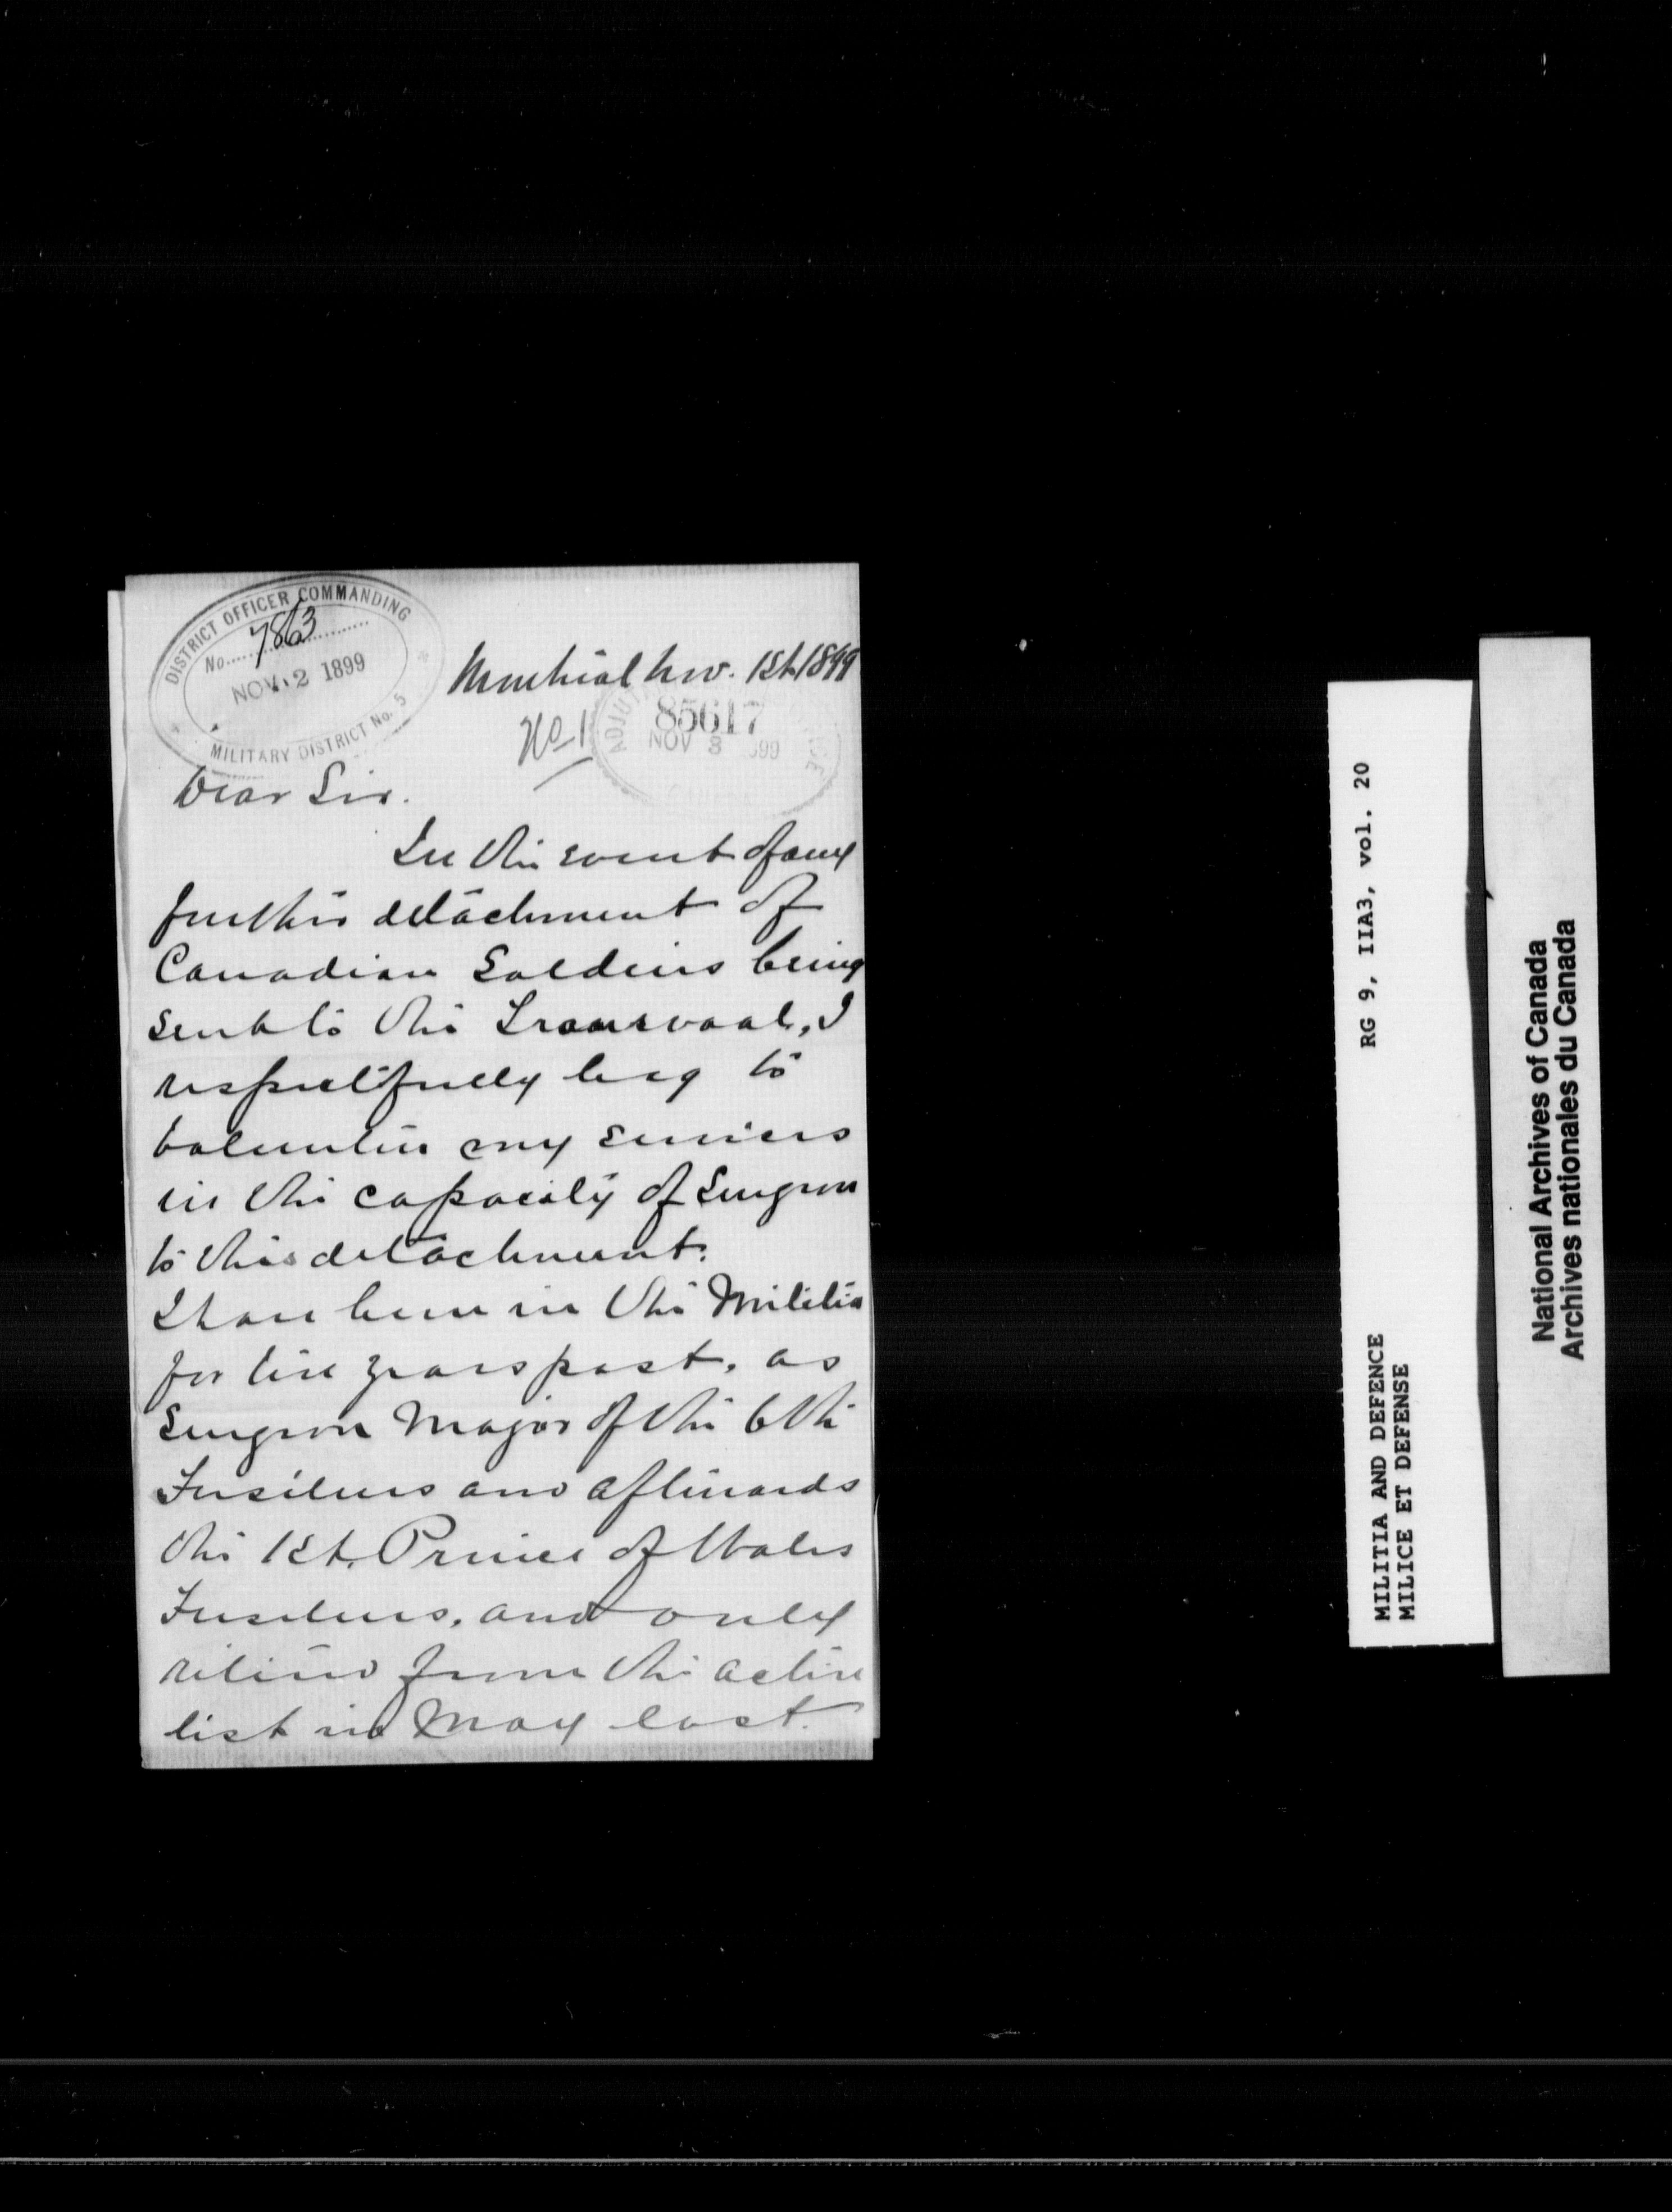 DISTRICT OFFICER COMMANDING
No. 7863
NOV. 2 1899
MILITARY DISTRICT No. 5
Montreal Nov. 1st. 1899
No 1
85617
NOV 3 1899
Dear Sir.
In the event of any
further detachment of
Canadian Soldiers being
sent to the Transvaal, I
respectfully beg to
volunteer my services
in the capacity of Surgeon
to this detachment.
I have been in the Militia
for five years past, as
Surgeon Major of the 6th
Fusiliers and afterwards
the 1st. Prince of Wales
Fusiliers, and only
retired from the active
list in May last.
RG 9, IIA3, vol. 20
MILITIA AND DEFENCE
MILICE ET DEFENSE
National Archives of Canada
Archives nationales du Canada